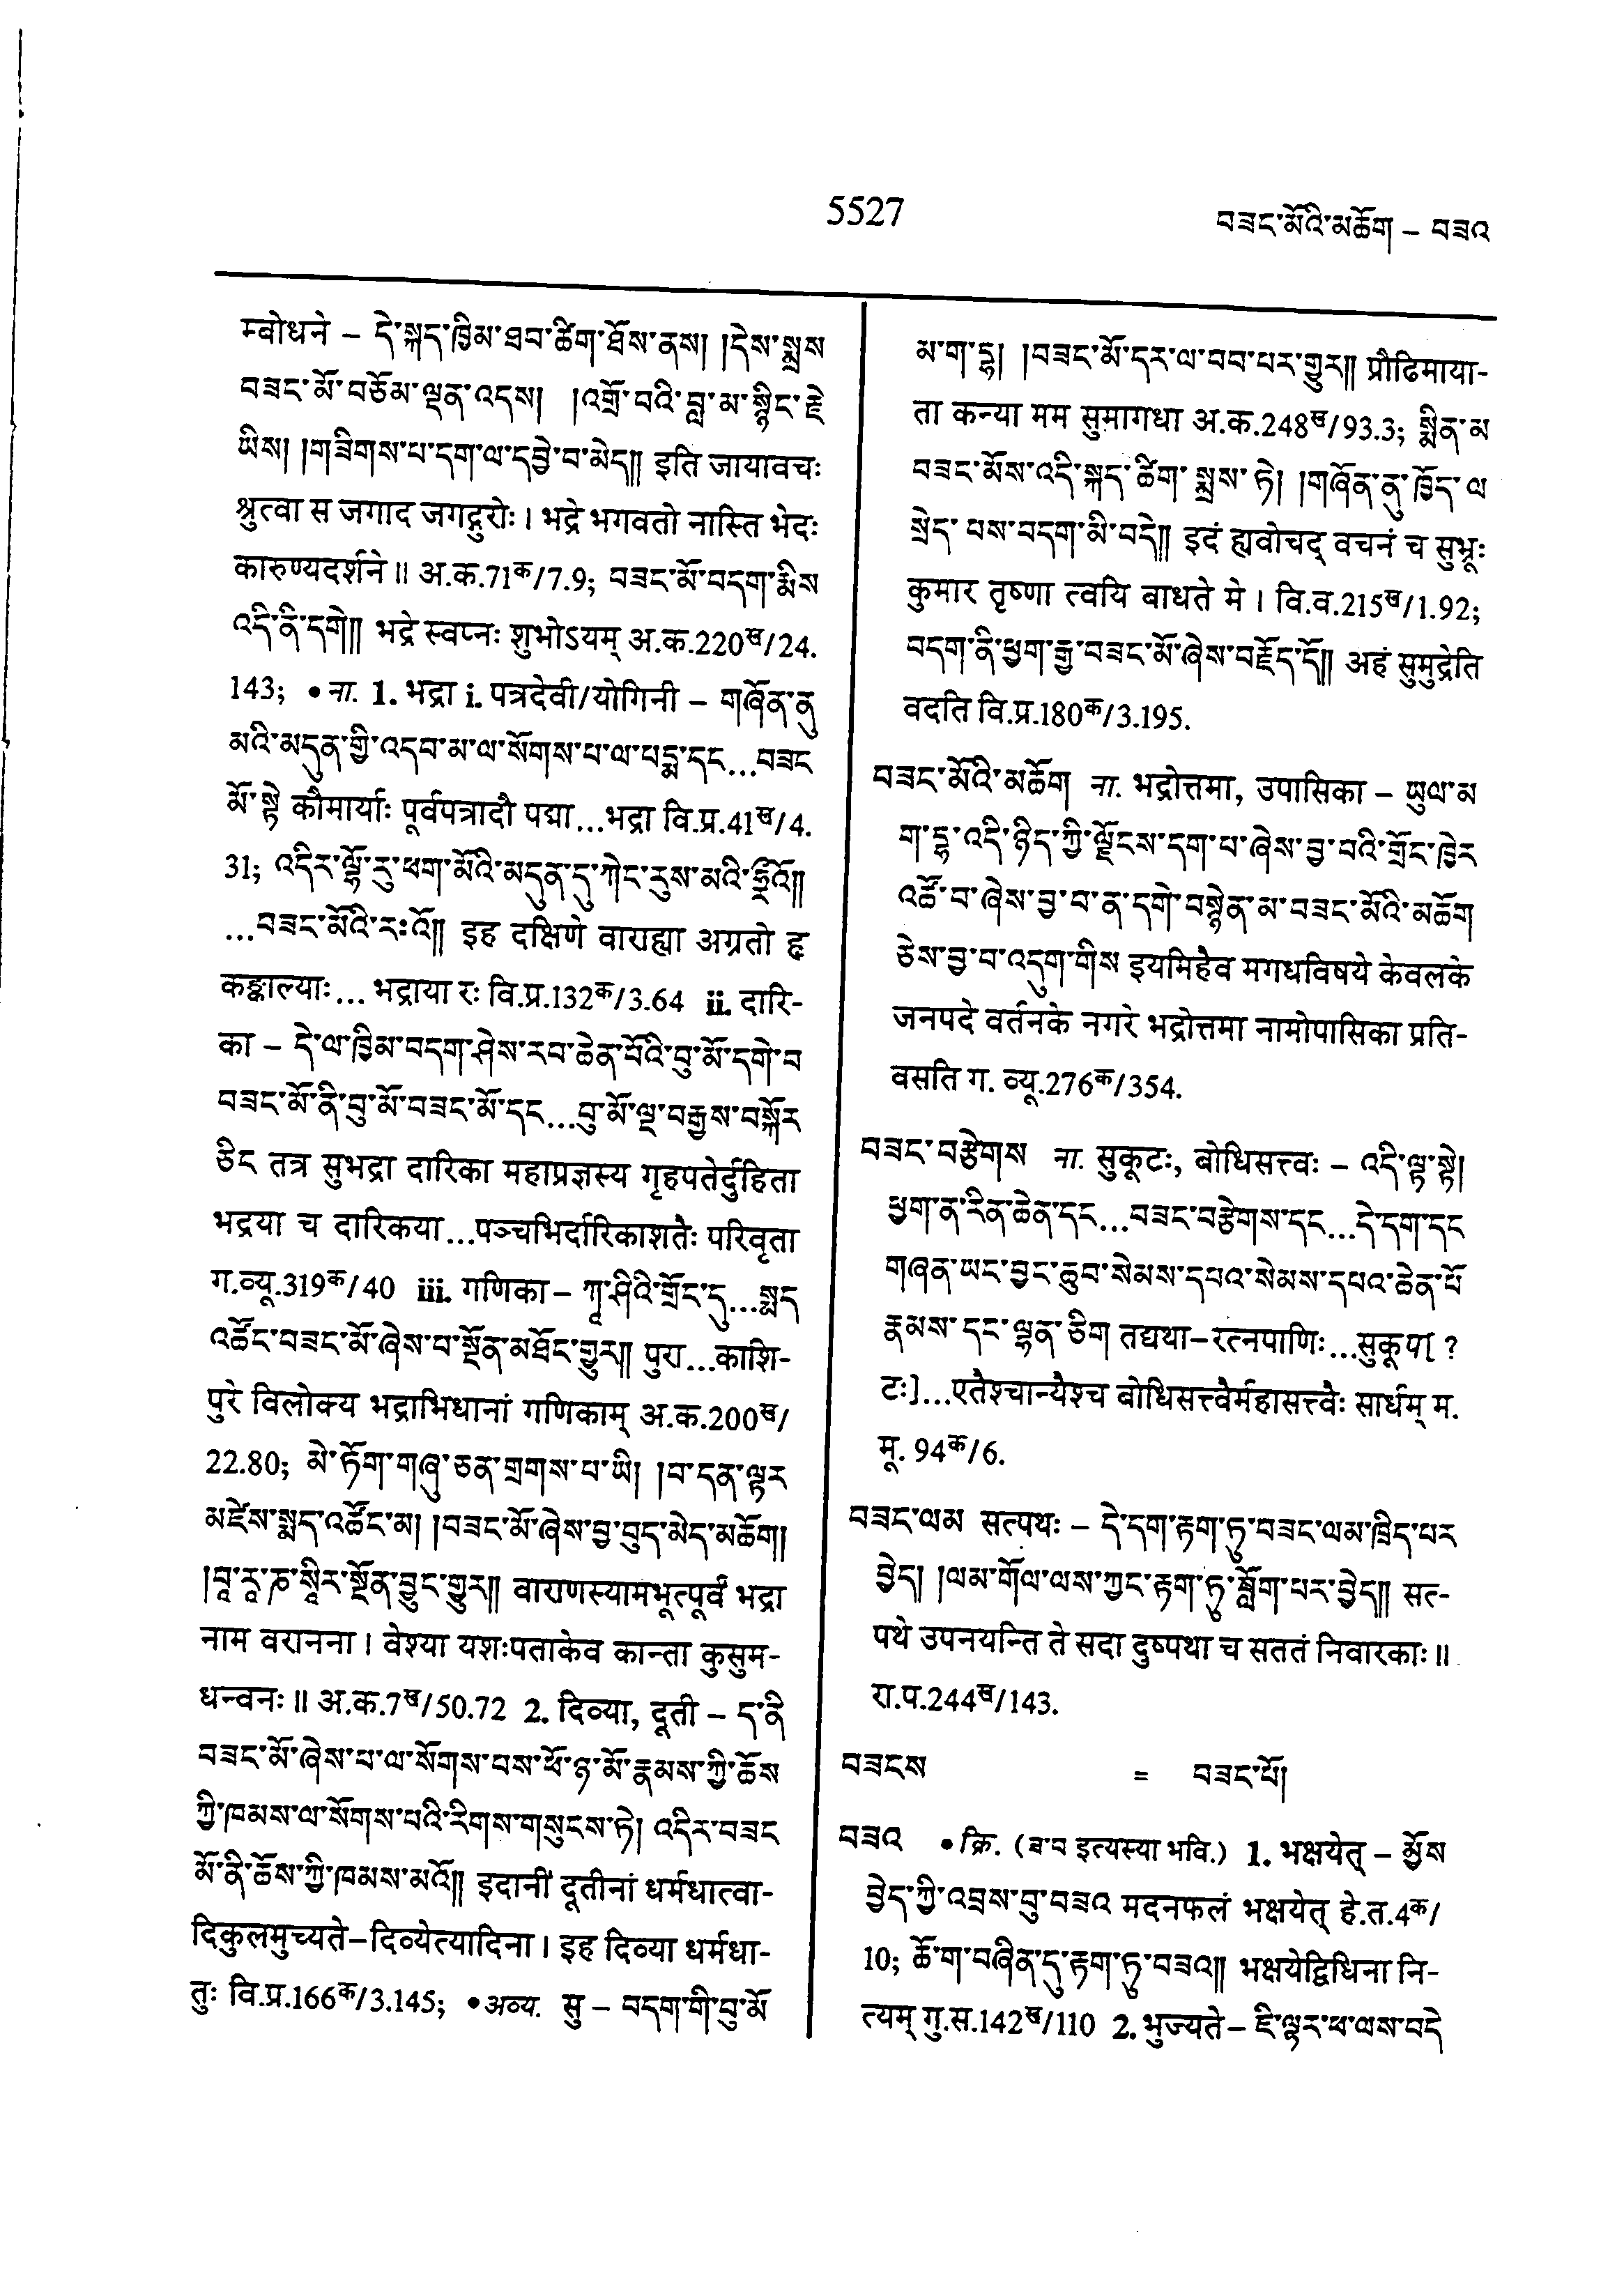 5527
བཟང་མོའི་མཆོག – བཟའ
म्बोधने – དེ་སྐད་ཁྱིམ་ཐབ་ཚིག་ཐོས་ནས། །དེས་སྨྲས
བཟང་མོ་བཅོམ་ལྡན་འདས། །འགྲོ་བའི་བླ་མ་སྙིང་རྗེ
ཡིས། །གཟིགས་པ་དག་ལ་དབྱེ་བ་མེད།། इति जायावचः
श्रुत्वा स जगाद जगद्गुरोः । भद्रे भगवतो नास्ति भेदः
कारुण्यदर्शने ॥ अ.क.71क/7.9; བཟང་མོ་བདག་རྨིས
འདི་ནི་དགེ།། भद्रे स्वप्नः शुभोऽयम् अ.क.220ख/24.
143; • ना. 1. भद्रा i. पत्रदेवी/योगिनी – གཞོན་ནུ
མའི་མདུན་གྱི་འདབ་མ་ལ་སོགས་པ་ལ་པདྨ་དང...བཟང
མོ་སྟེ कौमार्याः पूर्वपत्रादौ पद्मा...भद्रा वि.प्र.41ख/4.
31; འདིར་ལྷོ་རུ་ཕག་མོའི་མདུན་དུ་ཀེང་རུས་མའི་ཧྲྀའོ།།
...བཟང་མོའི་རཿའོ།། इह दक्षिणे वाराह्या अग्रतो हृ
कङ्काल्याः... भद्राया रः वि.प्र.132क/3.64 ii. दारि-
का – དེ་ལ་ཁྱིམ་བདག་ཤེས་རབ་ཆེན་པོའི་བུ་མོ་དགེ་བ
བཟང་མོ་ནི་བུ་མོ་བཟང་མོ་དང...བུ་མོ་ལྔ་བརྒྱས་བསྐོར
ཅིང तत्र सुभद्रा दारिका महाप्रज्ञस्य गृहपतेर्दुहिता
भद्रया च दारिकया...पञ्चभिर्दारिकाशतैः परिवृता
ग.व्यू.319क/40 iii. गणिका – ཀཱ་ཤིའི་གྲོང་དུ...སྨད
འཚོང་བཟང་མོ་ཞེས་པ་སྔོན་མཐོང་གྱུར།། पुरा...काशि-
पुरे विलोक्य भद्राभिधानां गणिकाम् अ.क.200ख/
22.80; མེ་ཏོག་གཞུ་ཅན་གྲགས་པ་ཡི། །བ་དན་ལྟར
མཛེས་སྨད་འཚོང་མ། །བཟང་མོ་ཞེས་བྱ་བུད་མེད་མཆོག།
།བཱ་རཱ་ཎ་སཱིར་སྔོན་བྱུང་གྱུར།། वाराणस्यामभूत्पूर्वं भद्रा
नाम वरानना । वेश्या यशःपताकेव कान्ता कुसुम-
धन्वनः ॥ अ.क.7ख/50.72 2. दिव्या, दूती – ད་ནི
བཟང་མོ་ཞེས་པ་ལ་སོགས་པས་ཕོ་ཉ་མོ་རྣམས་ཀྱི་ཆོས
ཀྱི་ཁམས་ལ་སོགས་པའི་རིགས་གསུངས་ཏེ། འདིར་བཟང
མོ་ནི་ཆོས་ཀྱི་ཁམས་མའོ།། इदानीं दूतीनां धर्मधात्वा-
दिकुलमुच्यते–दिव्येत्यादिना । इह दिव्या धर्मधा-
तुः वि.प्र.166क/3.145; • अव्य. सु – བདག་གི་བུ་མོ
མ་ག་དྷཱ། །བཟང་མོ་དར་ལ་བབ་པར་གྱུར།། प्रौढिमाया-
ता कन्या मम सुमागधा अ.क.248ख/93.3; སྨིན་མ
བཟང་མོས་འདི་སྐད་ཚིག་སྨྲས་ཏེ། །གཞོན་ནུ་ཁྱོད་ལ
སྲེད་པས་བདག་མི་བདེ།། इदं ह्यवोचद् वचनं च सुभ्रूः
कुमार तृष्णा त्वयि बाधते मे । वि.व.215ख/1.92;
བདག་ནི་ཕྱག་རྒྱ་བཟང་མོ་ཞེས་བརྗོད་དོ།། अहं सुमुद्रेति
वदति वि.प्र.180क/3.195.
བཟང་མོའི་མཆོག ना. भद्रोत्तमा, उपासिका – ཡུལ་མ
ག་དྷ་འདི་ཉིད་ཀྱི་ལྗོངས་དག་པ་ཞེས་བྱ་བའི་གྲོང་ཁྱེར
འཚོ་བ་ཞེས་བྱ་བ་ན་དགེ་བསྙེན་མ་བཟང་མོའི་མཆོག
ཅེས་བྱ་བ་འདུག་གིས इयमिहैव मगधविषये केवलके
जनपदे वर्तनके नगरे भद्रोत्तमा नामोपासिका प्रति-
वसति ग. व्यू.276क/354.
བཟང་བརྩེགས ना. सुकूटः, बोधिसत्त्वः – འདི་ལྟ་སྟེ།
ཕྱག་ན་རིན་ཆེན་དང...བཟང་བརྩེགས་དང...དེ་དག་དང
གཞན་ཡང་བྱང་ཆུབ་སེམས་དཔའ་སེམས་དཔའ་ཆེན་པོ
རྣམས་དང་ལྷན་ཅིག तद्यथा–रत्नपाणिः...सुकूप[ ?
टः]...एतैश्चान्यैश्च बोधिसत्त्वैर्महासत्त्वैः सार्धम् म.
मू. 94क/6.
བཟང་ལམ सत्पथः – དེ་དག་རྟག་ཏུ་བཟང་ལམ་ཁྲིད་པར
བྱེད། །ལམ་གོལ་ལས་ཀྱང་རྟག་ཏུ་བཟློག་པར་བྱེད།། सत्-
पथे उपनयन्ति ते सदा दुष्पथा च सततं निवारकाः ॥
रा.प.244ख/143.
བཟངས = བཟང་པོ།
བཟའ • क्रि. (ཟ་བ इत्यस्या भवि.) 1. भक्षयेत् – མྱོས
བྱེད་ཀྱི་འབྲས་བུ་བཟའ मदनफलं भक्षयेत् हे.त.4क/
10; ཆོ་ག་བཞིན་དུ་རྟག་ཏུ་བཟའ།། भक्षयेद्विधिना नि-
त्यम् गु.स.142ख/110 2. भुज्यते – ཇི་ལྟར་ཕ་ལས་བདེ